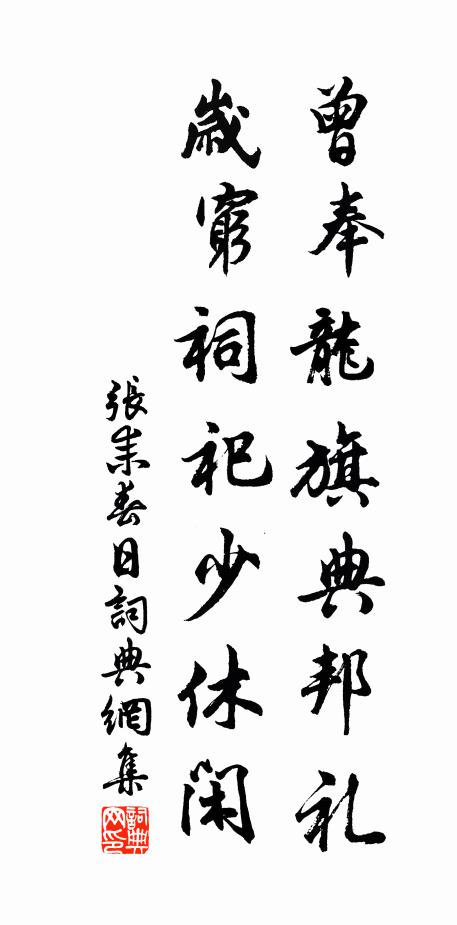 曾奉龍旗典邦礼
歲窮祠祀少休閑
張耒春日詞典網集
詞典网印